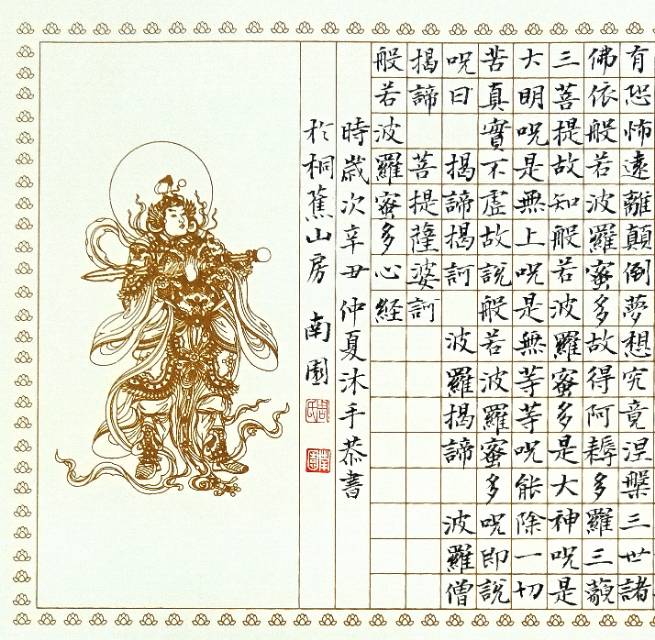 有恐怖遠離顛倒夢想究竟涅槃三世諸
佛依般若波羅蜜多故得阿耨多羅三藐
三菩提故知般若波羅蜜多是大神呪是
大明呪是無上呪是無等等呪能除一切
苦真實不虛故說般若波羅蜜多呪即說
呪曰 揭諦揭訶 波羅揭諦 波羅僧
揭諦 菩提薩婆訶
般若波羅蜜多心経
時歲次辛丑仲夏沐手恭書
於桐蕉山房 南園